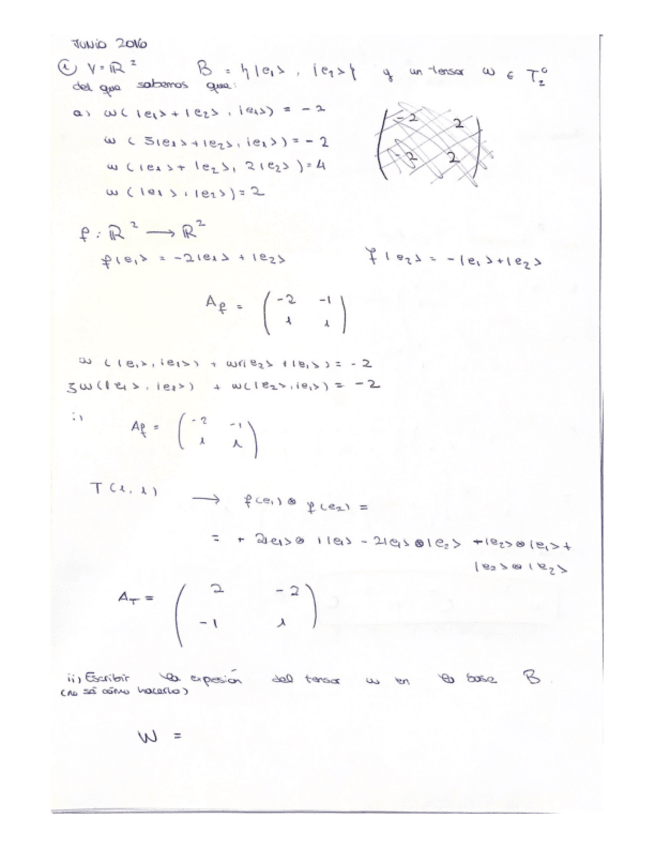 JUNIO 2016
① V=ℝ² B = {|e₁>, |e₂>} y un tensor ω ∈ T₂⁰
del que sabemos que:
a) ω(|e₁>+|e₂>, |e₁>) = -2
ω( 3|e₁>+|e₂>, |e₁>) = -2
ω(|e₁>+|e₂>, 2|e₂>)=4
ω(|e₁>, |e₂>)=2
-2 2
-2 2
f: ℝ² → ℝ²
f|e₁> = -2|e₁> + |e₂> f|e₂> = -|e₁>+|e₂>
A_f = ( -2 -1
1 1 )
ω(|e₁>,|e₁>) + ω(|e₂>+|e₁>) = -2
3ω(|e₁>,|e₁>) + ω(|e₂>,|e₁>) = -2
i)
A_f = ( -2 -1
1 1 )
T(1,1) → f(e₁)⊗ f(e₂) =
= + 2|e₁>⊗ |e₁> - 2|e₁>⊗|e₂> +|e₂>⊗|e₁>+
|e₂>⊗|e₂>
A_T = ( 2 -2
-1 1 )
ii) Escribir la expresión del tensor ω en la base B.
(no sé cómo hacerlo)
W =